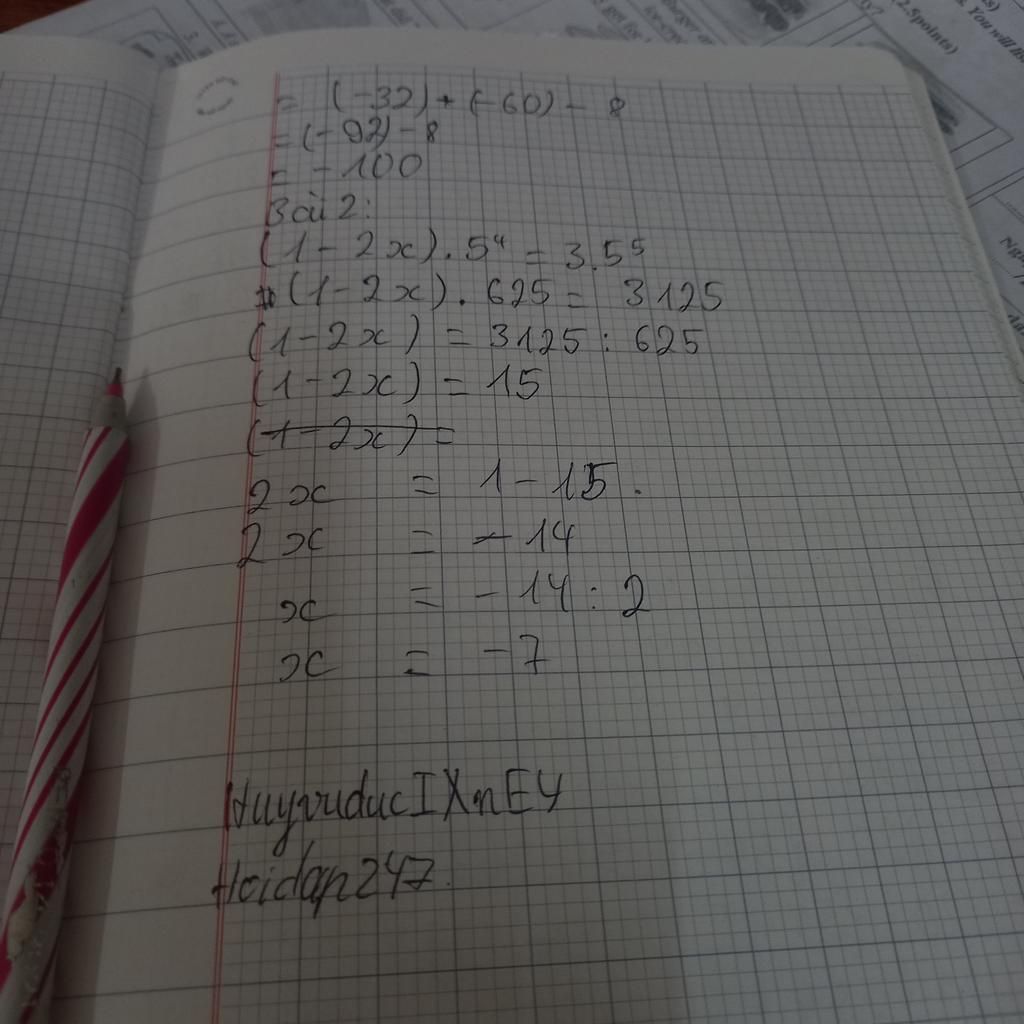 = (-32) + (-60) - 8
= (-92) - 8
= -100
Bài 2:
(1 - 2x) . 5⁴ = 3.5⁵
(1 - 2x) . 625 = 3125
(1 - 2x) = 3125 : 625
(1 - 2x) = 15
(1 - 2x) =
2x = 1 - 15.
2x = -14
x = -14 : 2
x = -7
HuyvuducIXnE4
Hoidap247.
(2.5points)
You will